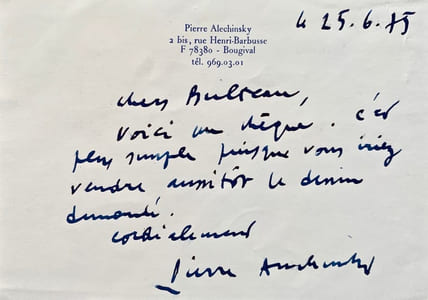 Pierre Alechinsky
2 bis, rue Henri-Barbusse
F 78380 - Bougival
tél. 969.03.01
le 25.6.75
cher Bulteau,
Voici un chèque. c'est
plus simple puisque vous iriez
vendre aussitôt le dessin
demandé.
cordialement
Pierre Alechinsky